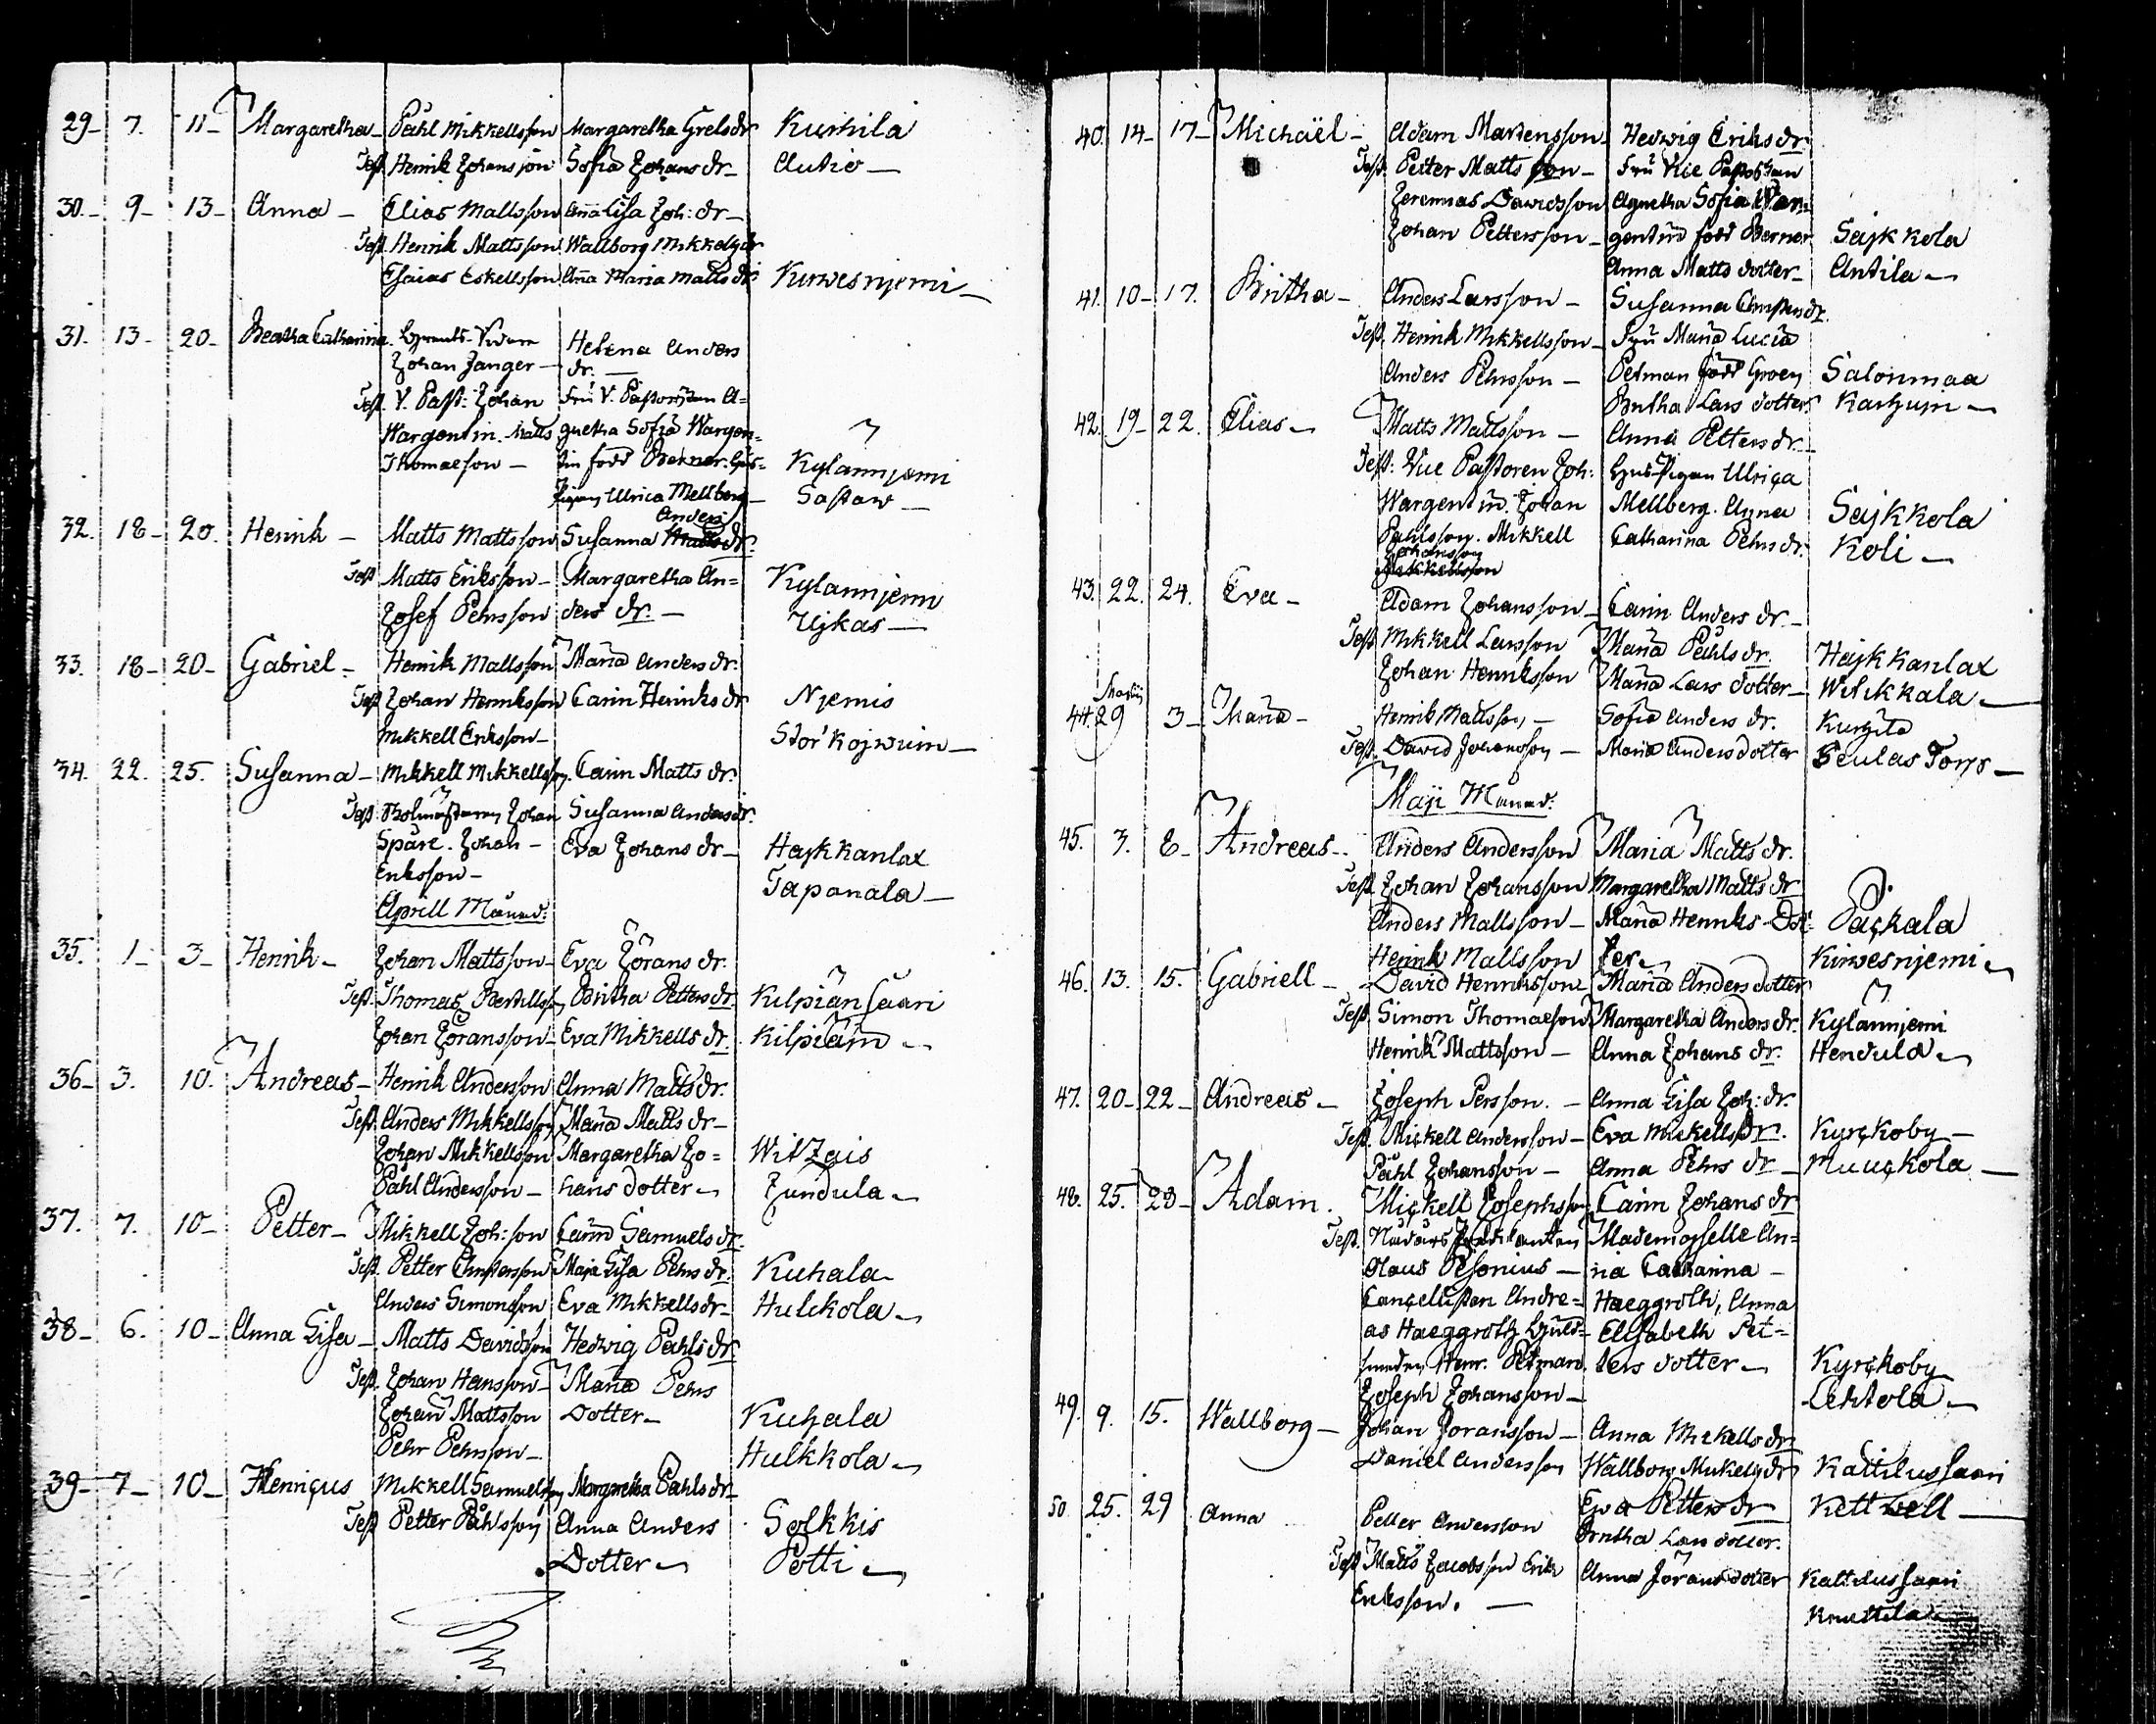 29- 7. 11- Margaretha- Påhl Mikkellsson Margaretha Grels dr Kurkila
Test. Henrik Johansson Sofia Johans dr- Autio-
30.- 9- 13- Anna- Elias Mattsson Aña Lisa Joh: dr-
Test. Henrik Mattsson Wallborg Mikkels dr
Esaias Eskellsson Aña Maria Matts dr Kirwesnjemi-
31. 13- 20- Beatha Catharina. Johan Janger- Helena Anders dr.-
Test. V. Past: Johan Fru V. Pastorskan A=
Wargentin. Matts gnetha Sofia Wargen=
Thomasson- tin född Berner. Kylännjemi
Pigan Ulrica Mellberg- Sassaw-
Anders
32. 18- 20. Henrik- Matts Mattsson Susanna Matts dr.
Test Matts Eriksson- Margaretha An= Kylännjemi
Josef Pehrsson ders dr.- Ujkas-
33. 18- 20- Gabriel- Henrik Mattsson Maria Anders dr.
Test Johan Henriksson Carin Henriks dr Njemis
Mikkell Eriksson- Stor Kojwuin-
34. 22. 25. Susanna- Mikkell Mikkellsson. Carin Matts dr.
Test. Johan Susanna Anders dr.
Spåre. Johan- Eva Johans dr- Hajkkanlax
Eriksson- Tapanala-
Aprill Månad:
35. 1- 3- Henrik- Johan Mattsson- Eva Jörans dr.
Test. Thomas Bertillsson Britha Petters dr. Kilpiänsaari
Johan Jöransson- Eva Mikkells dr. Kilpiäin-
36- 3. 10. Andreas- Henrik Andersson Anna Matts dr.
Test. Anders Mikkellsson Maria Matts dr-
Johan Mikkellsson Margaretha Jo= Witzais
Påhl Andersson- hans dotter- Jundula-
37. 7. 10- Petter- Mikkell Joh: son Carin Samuels dr.
Test. Petter Christersson Maja Lisa Pehrs dr. Kuhala-
Anders Simonsson Eva Mikkells dr- Hulckola-
38- 6. 10- Anna Lisa- Matts Davidsson Hedvig Påhls dr.
Test. Johan Hansson- Maria Pehrs
Johan Mattsson Dotter- Kuhala
Pehr Pehrsson- Hulkkola-
39- 7- 10- Henricus Mikkell Samuelsson Margaretha Påhls dr-
Test Petter Påhlsson Anna Anders Solkkis
Dotter- Potti-
40. 14- 17- Michaël- Adam Mårtensson- Hedwig Eriks dr.
Test. Petter Mattsson- Fru Vice Pastorskan
Jeremias Davidsson Agnetha Sofia War=
Johan Pettersson- gentin född Berner Säjkkola
Anna Matts dotter- Antila-
41. 10- 17. Britha- Anders Larsson- Susanna Christers dr.
Test. Henrik Mikkellsson- Fru Maria Lucia
Anders Pehrsson- Petman född Groen Salonmaa
Britha Lars dotter Karhuin-
42. 19- 22. Elias- Matts Mattsson- Anna Petters dr.-
Test: Vice Pastoren Joh: Hus-Pigan Ulrica
Wargentin. Johan Mellberg. Anna Säjkkola
Påhlsson. Mikkell Catharina Pehrs dr. Koli-
Johansson
Mikkellsson
43. 22. 24. Eva- Adam Johansson- Carin Anders dr-
Test Mikkell Larsson Maria Påhls dr. Hajkkanlax
Johan Henriksson Maria Lars dotter- Wilikkala-
Martij
44. 29 3- Maria- Henrik Mattsson- Sofia Anders dr. Kurkila
Test. David Johansson- Maria Anders dotter Seulas Torp-
Maji Månad:
45. 3. 8- Andreas- Anders Andersson Maria Matts dr.
Test. Johan Johansson Margaretha Matts dr
Anders Mattsson- Maria Henriks Dot: Päckala
Henrik Mattsson ter- Kirwesnjemi-
46. 13. 15. Gabriell- David Henriksson- Maria Anders dotter
Test. Simon Thomasson Margaretha Anders dr. Kylännjemi
Henrik Mattsson- Anna Johans dr. Hendula-
47. 20- 22- Andreas- Joseph Persson.- Anna Lisa Joh: dr.
Test. Mickell Andersson- Eva Mickells dr. Kyrckoby-
Påhl Johansson- Anna Pehrs dr- Muuckola-
48. 25. 28- Adam. Mickell Josephsson Carin Johans dr
Test. Mademoiselle An=
Olaus Pesonius- na Catharina-
Cancelisten Andre= Haeggroth, Anna
as Haeggroth Elisabeth Pet=
smeden Henr. Petman. ters dotter- Kyrckoby
Joseph Johansson- Lehtola-
49. 9. 15. Wallborg- Johan Jöransson- Anna Mickells dr
Daniel Andersson Wallborg Mickels dr Kattilussaari
50. 25. 29 Anna Petter Andersson Eva Petters dr Kettwell-
Britha Lars dotter.
Test Matts Jacobsson Erik Anna Jörans dotter Kattilussaari
Eriksson.- Knuttila-